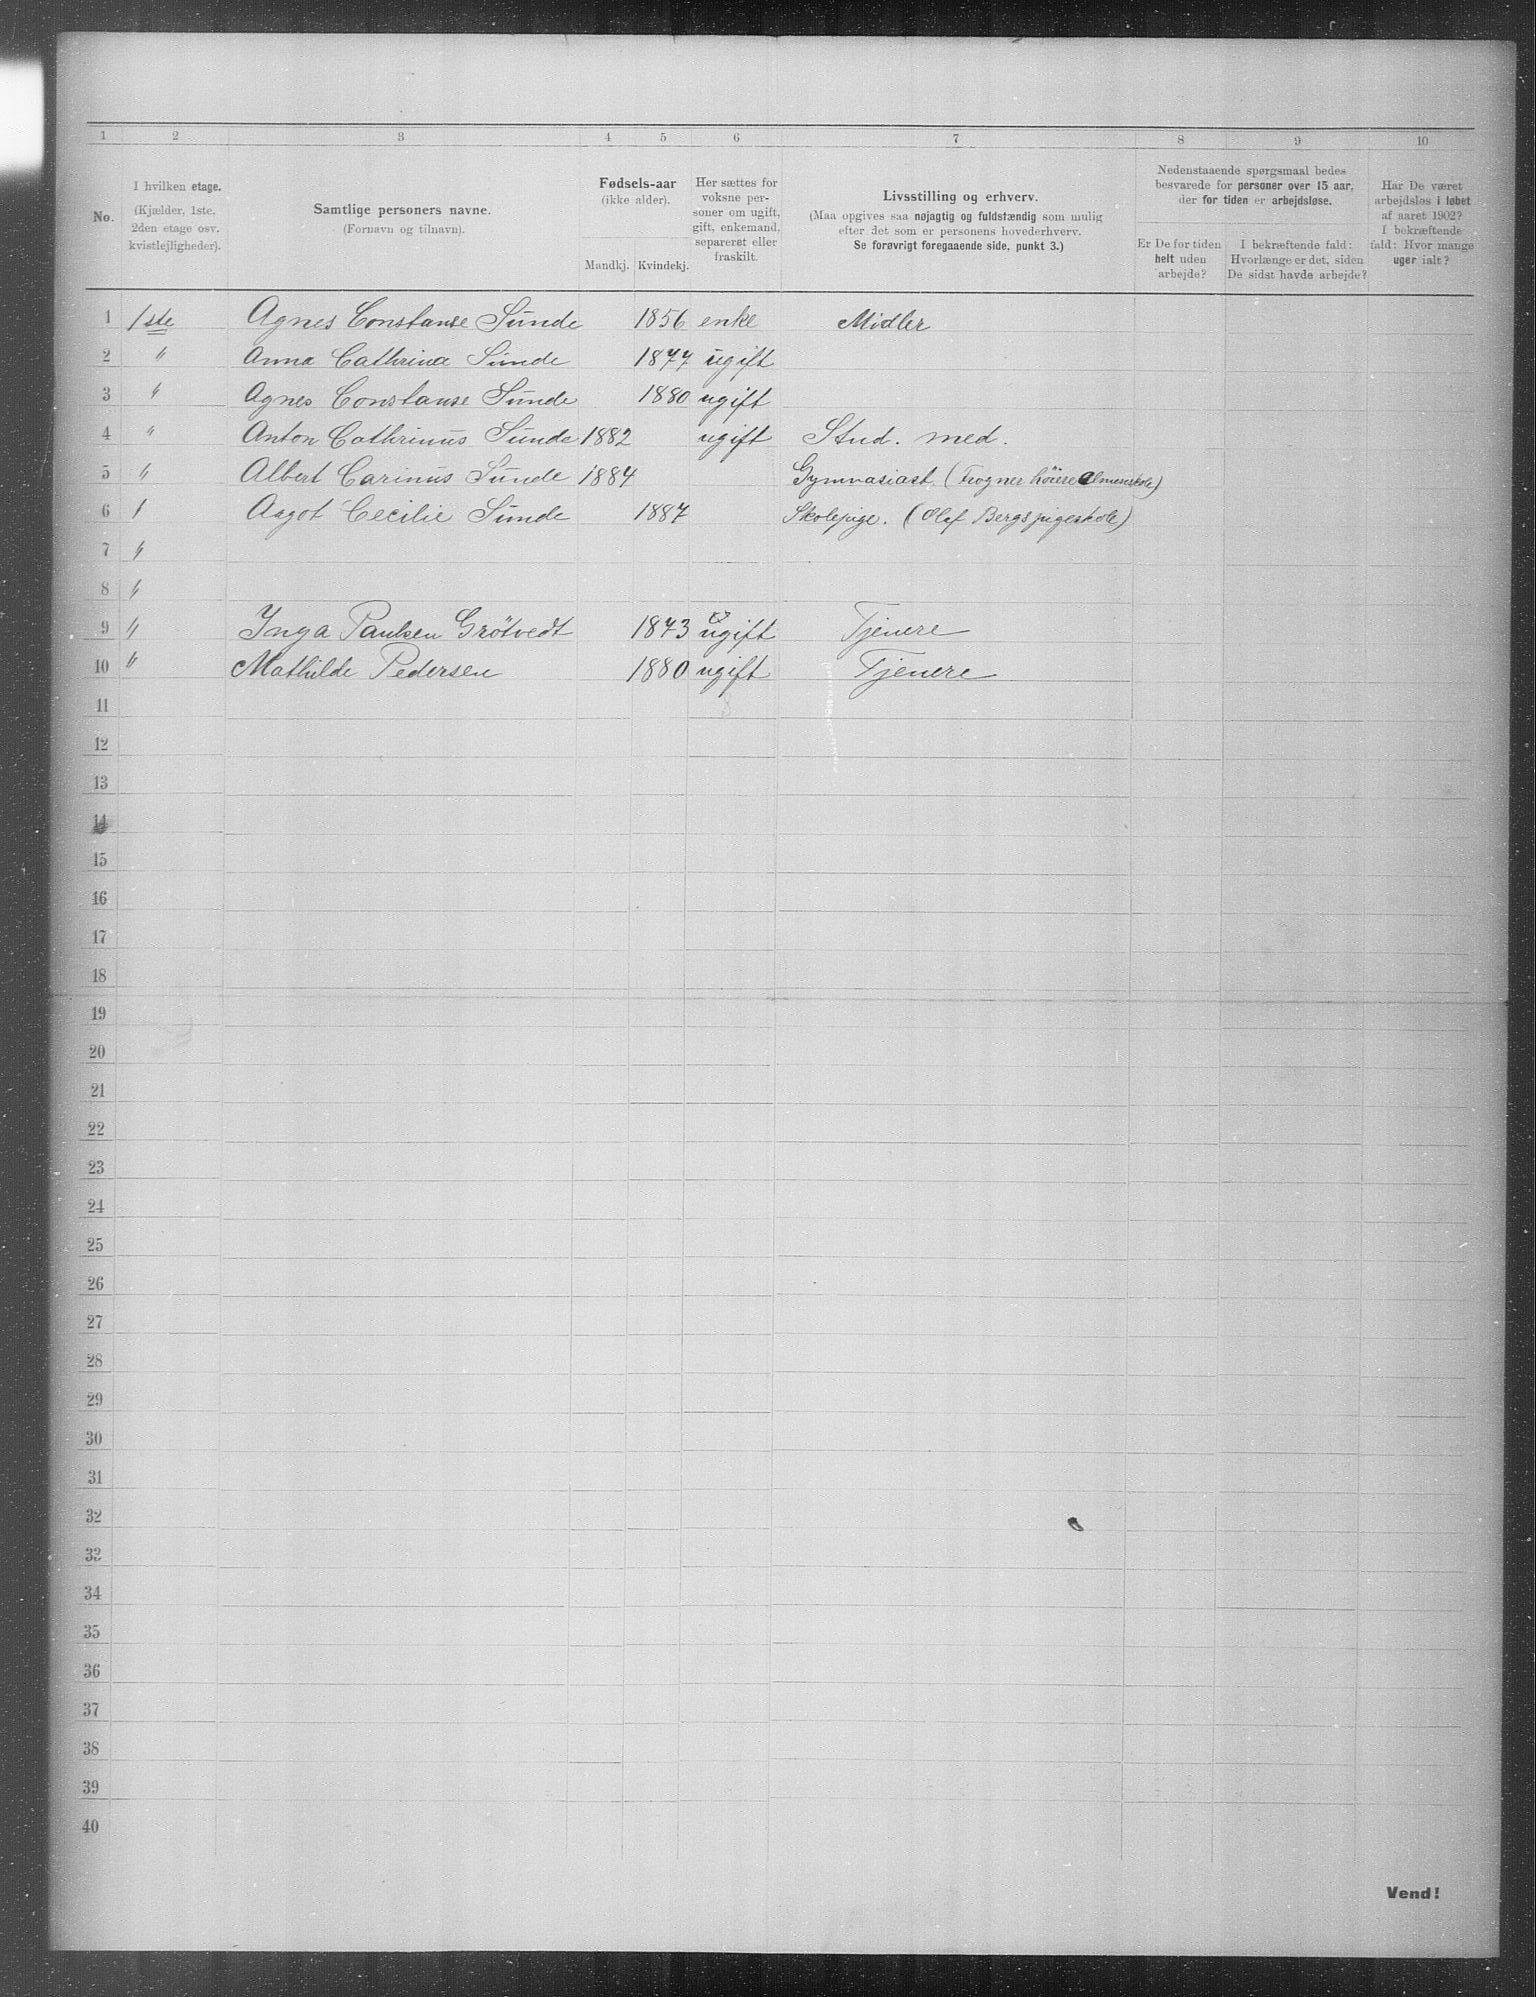 1 2 3 4 5 6 7 8 9 10
No.
I hvilken etage.
(Kjælder, 1ste,
2den etage osv.
kvistlejligheder).
Samtlige personers navne.
(Fornavn og tilnavn).
Fødsels-aar
(ikke alder).
Mandkj. Kvindekj.
Her sættes for
voksne per-
soner om ugift,
gift, enkemand,
separeret eller
fraskilt.
Livsstilling og erhverv.
(Maa opgives saa nøjagtig og fuldstændig som mulig
efter det som er personens hovederhverv.
Se forøvrigt foregaaende side, punkt 3.)
Nedenstaaende spørgsmaal bedes
besvarede for personer over 15 aar,
der for tiden er arbejdsløse.
Er De for tiden
helt uden
arbejde?
I bekræftende fald:
Hvorlænge er det, siden
De sidst havde arbejde?
Har De været
arbejdsløs i løbet
af aaret 1902?
I bekræftende
fald: Hvor mange
uger ialt?
1 1ste Agnes Constanse Sunde 1856 enke Midler
2 " Anna Cathrina Sunde 1877 ugift
3 " Agnes Constanse Sunde 1880 ugift
4 " Anton Cathrinus Sunde 1882 ugift Stud. med.
5 " Albert Carinus Sunde 1884 Gymnasiast (Frogner höiere almenskole)
6 " Aagot Cecilie Sunde 1887 Skolepige. (Olaf Bergs pigeskole)
7 "
8 "
9 " Inga Paulsen Grötvedt 1873 ugift Tjenere
10 " Mathilde Pedersen 1880 ugift Tjenere
11
12
13
14
15
16
17
18
19
20
21
22
23
24
25
26
27
28
29
30
31
32
33
34
35
36
37
38
39
40
Vend!